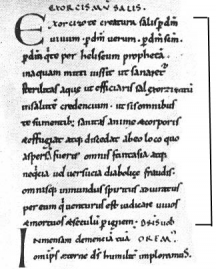 EXORCISMꝰ SALIS.
Exorcizo te creatura salis p dm̄
uiuum . p dm̄ uerum . p dm̄ scm̄ .
p dm̄ qi te per heliseum prophetā
inaquam mitti iussit ut sanaret
sterilitas aquę ut efficiaris sal exorcizatū
insalutē credencium . ut sis omnibus
te sumentib; sanitas animę & corporis
& effugiat atq; discedat ab eo loco quo
aspersū fueris omnis fantasia atq;
neq̄cia uel uersucia diabolicę fraudis .
omnisq; inmundus spiritus adiuratus
per eum q̄ uenturus est iudicare uiuos
& mortuos & sęculū p ignem .
Inmensam clemenciā tuā OREM'
omīps ęterne ds̄ humilit̄ imploramus .